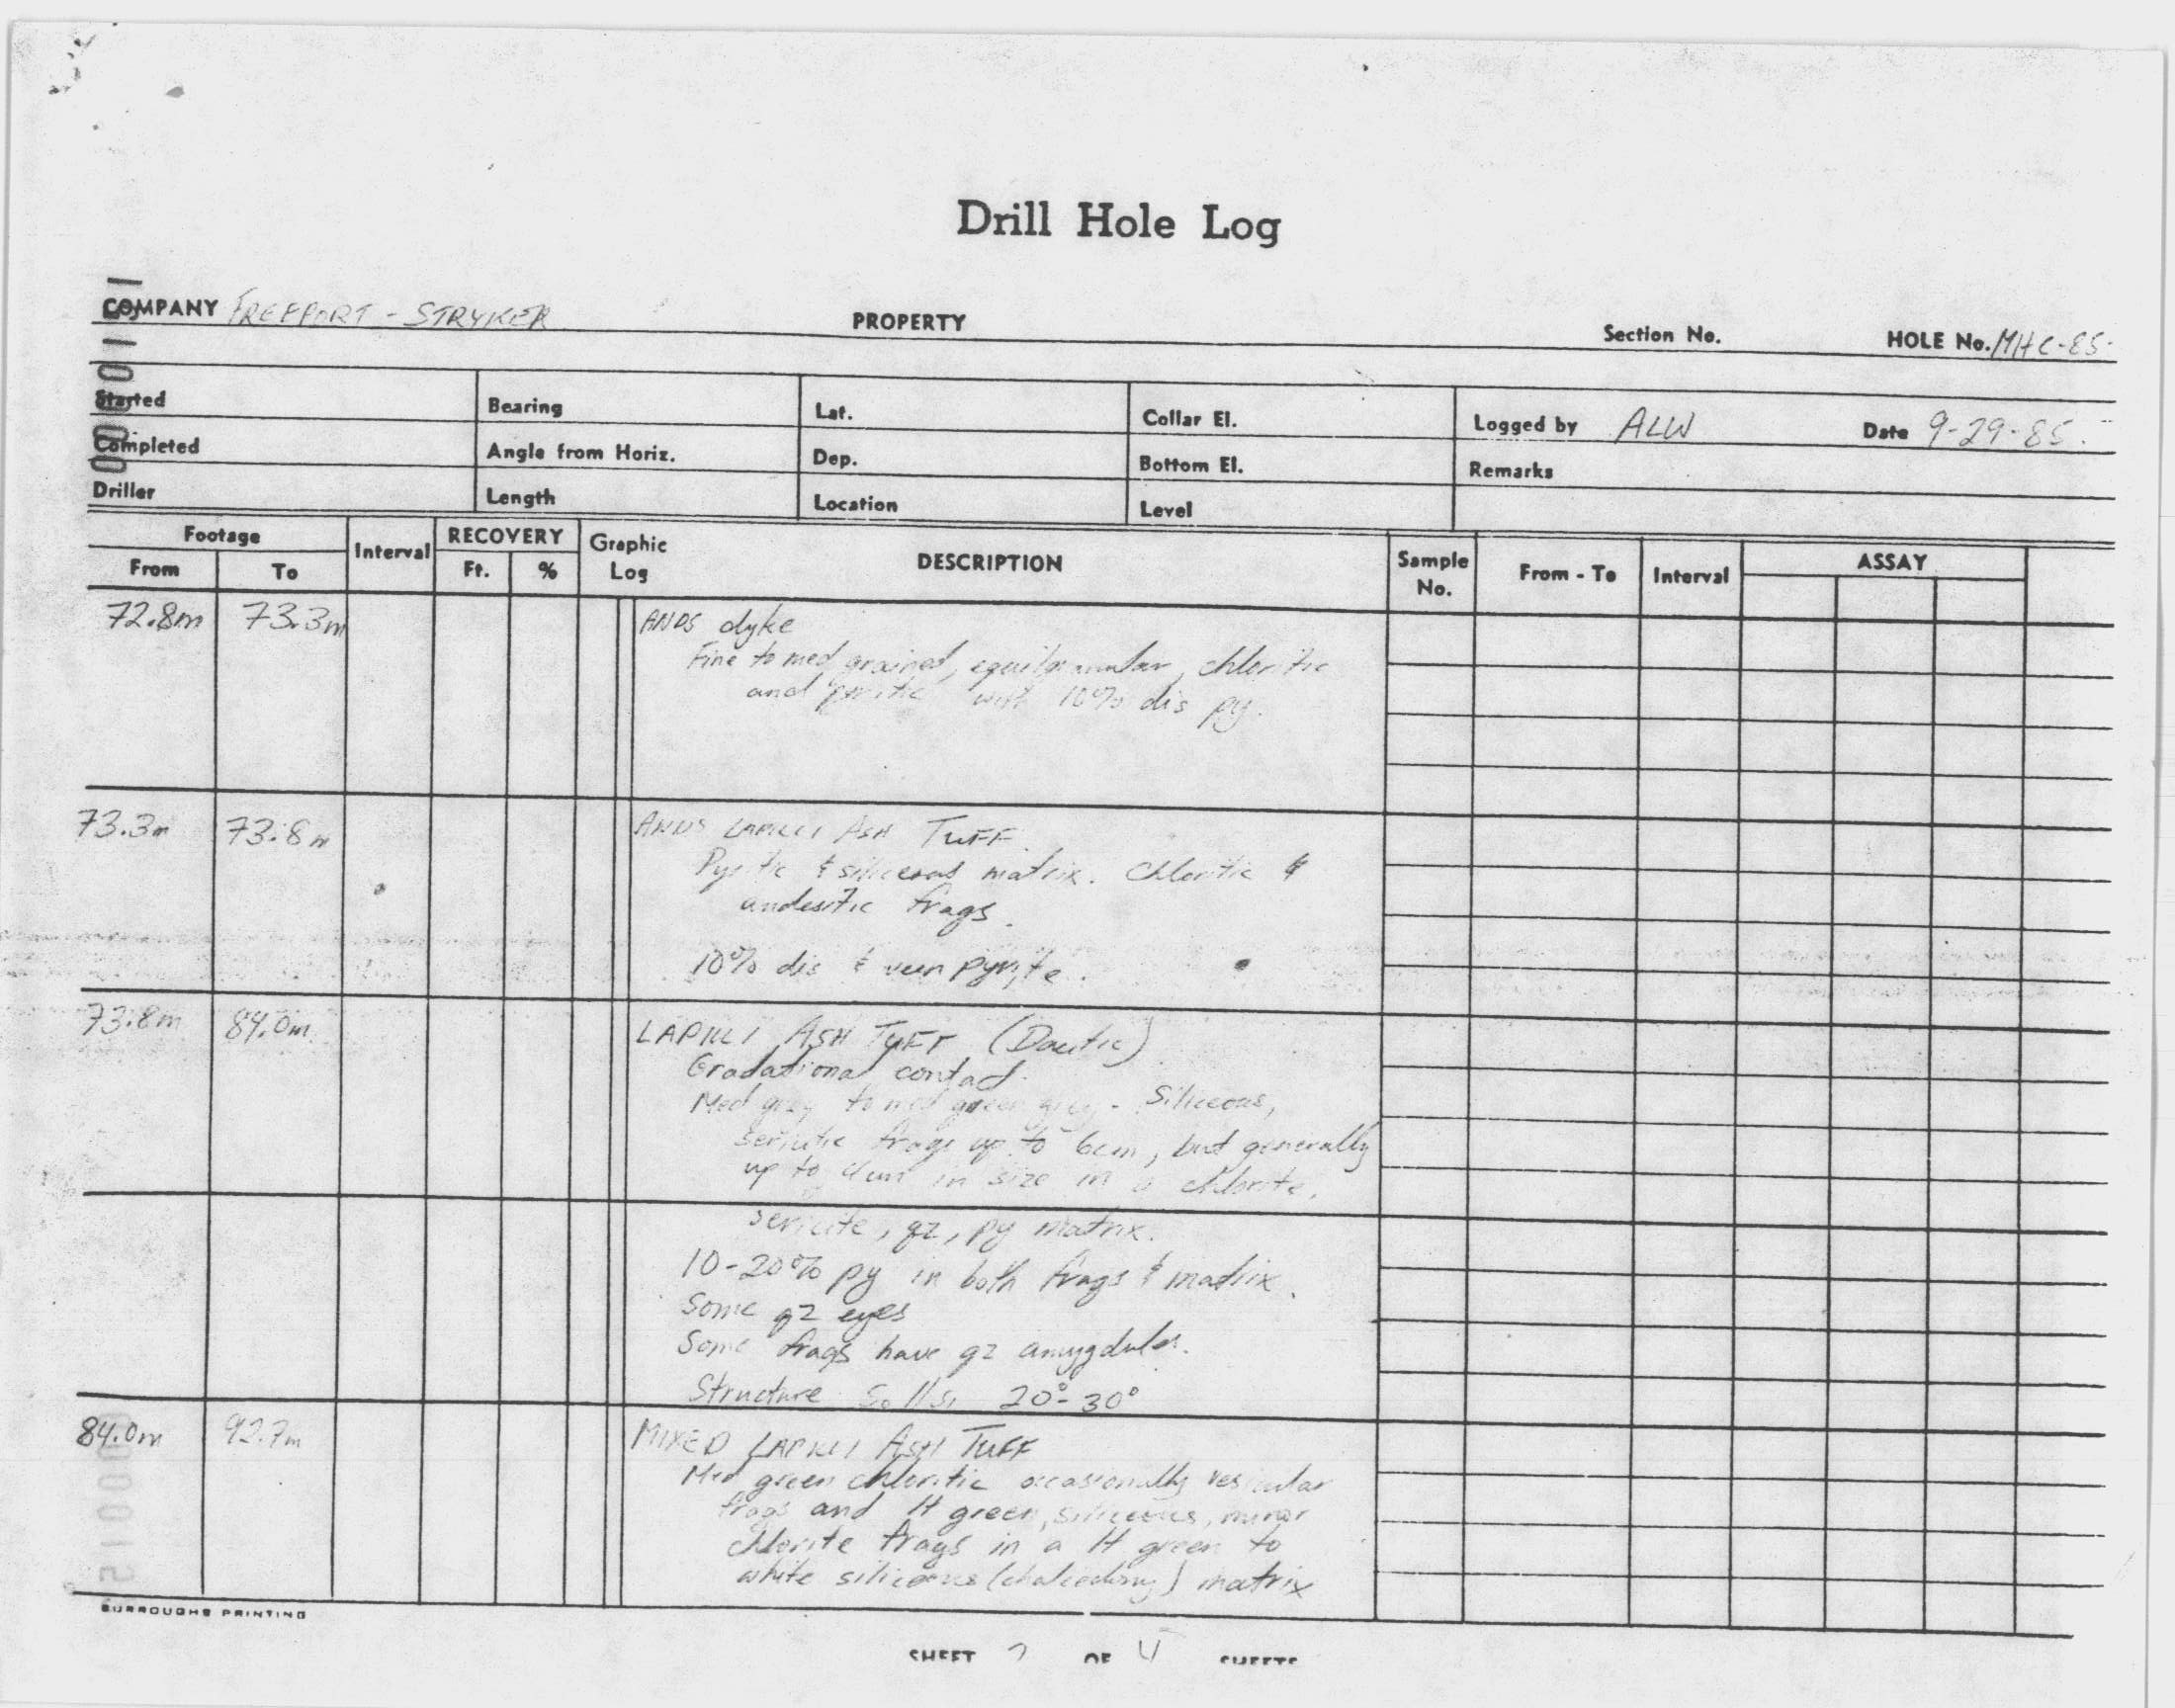 Drill Hole Log
COMPANY FREEPORT - STRYKER PROPERTY Section No. HOLE No. MHC-85-
Started Bearing Lat. Collar El. Logged by ALW Date 9-29-85.
Completed Angle from Horiz. Dep. Bottom El. Remarks
Driller Length Location Level
Footage Interval RECOVERY Graphic Log DESCRIPTION Sample No. From - To Interval ASSAY
From To Ft. %
72.8m 73.3m ANDS dyke
Fine to med grained, equigranular, chloritic
and pyritic with 10% dis py.
73.3m 73.8m ANDS LAPILLI ASH TUFF.
Pyritic & siliceous matrix. Chloritic &
andesitic frags.
10% dis & vein pyrite.
73.8m 84.0m LAPILLI ASH TUFF (Dacitic)
Gradational contact.
Med grey to med green grey - Siliceous,
sericitic frags up to 6cm, but generally
up to in size in a chlorite,
sericite, qz, py matrix.
10-20% py in both frags & matrix.
Some qz eyes
Some frags have qz amygdules.
Structure So//S1 20°-30°
84.0m 92.7m MIXED LAPILLI ASH TUFF
Med green chloritic occasionally vesicular
frags and lt green, siliceous, minor
chlorite frags in a lt green to
white siliceous (chalcedony) matrix
BURROUGHS PRINTING
SHEET OF 4 SHEETS